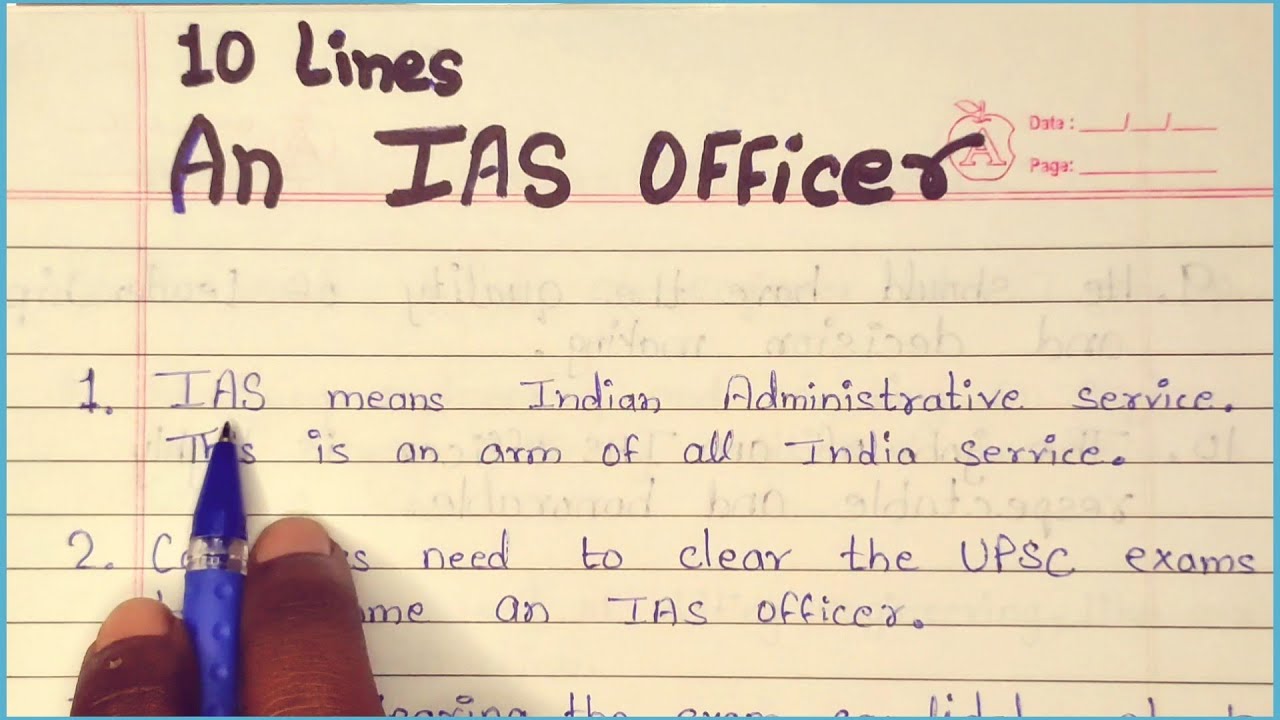 10 Lines
An IAS Officer
A
Date: __/__/__
Page: ____
1. IAS means Indian Administrative service.
This is an arm of all India service.
2. need to clear the UPSC exams
an IAS officer.
the exam